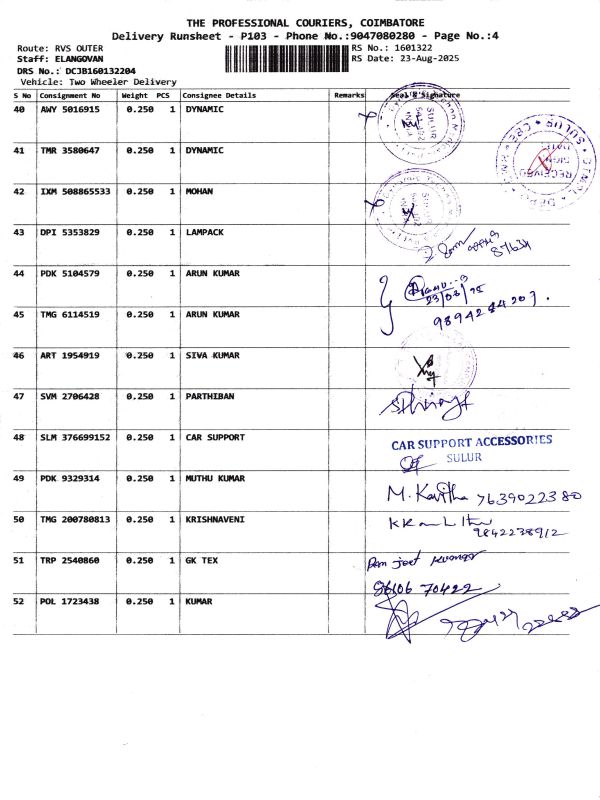 THE PROFESSIONAL COURIERS, COIMBATORE
Delivery Runsheet - P103 - Phone No.:9047080280 - Page No.:4
Route: RVS OUTER RS No.: 1601322
Staff: ELANGOVAN RS Date: 23-Aug-2025
DRS No.: DCJB160132204
Vehicle: Two Wheeler Delivery
S No Consignment No Weight PCS Consignee Details Remarks Seal & Signature
40 AWY 5016915 0.250 1 DYNAMIC
SULUR
41 TMR 3580647 0.250 1 DYNAMIC
RECEIVED
42 IXM 508865533 0.250 1 MOHAN
43 DPI 5353829 0.250 1 LAMPACK
87634
44 PDK 5104579 0.250 1 ARUN KUMAR
23/08/25
45 TMG 6114519 0.250 1 ARUN KUMAR
9894284207.
46 ART 1954919 0.250 1 SIVA KUMAR
47 SVM 2706428 0.250 1 PARTHIBAN
48 SLM 376699152 0.250 1 CAR SUPPORT
CAR SUPPORT ACCESSORIES
SULUR
49 PDK 9329314 0.250 1 MUTHU KUMAR
M. Kavitha 7639022380
50 TMG 200780813 0.250 1 KRISHNAVENI
9842238912
51 TRP 2540860 0.250 1 GK TEX
86106 70422
52 POL 1723438 0.250 1 KUMAR